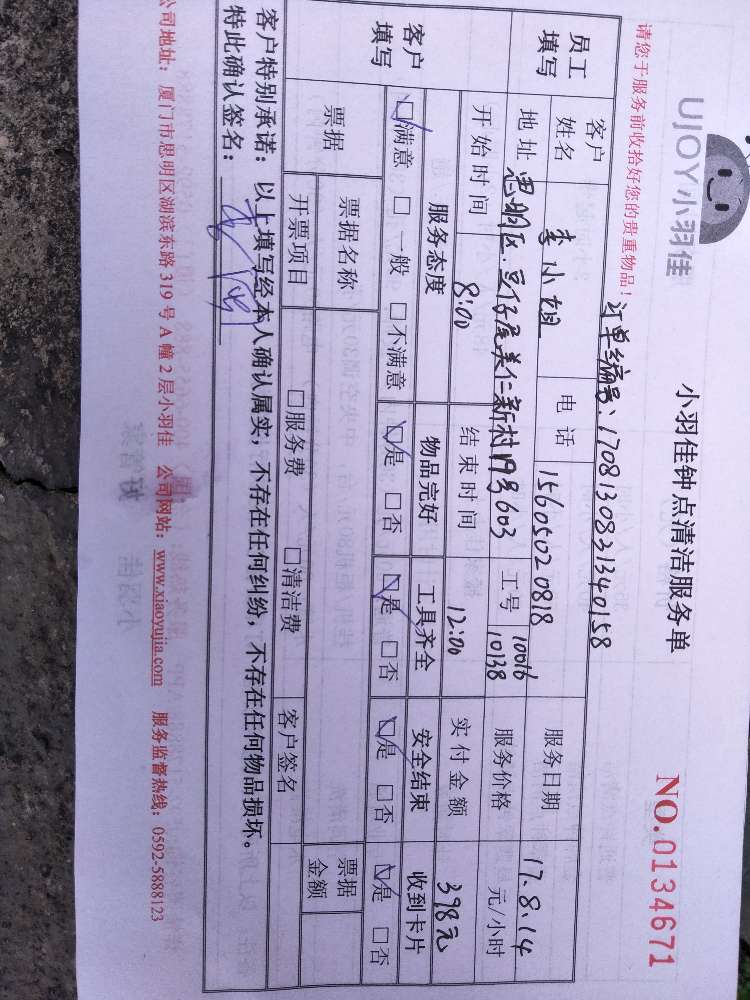 UJOY小羽佳
小羽佳钟点清洁服务单
NO.0134671
请您于服务前收拾好您的贵重物品！
订单编号：1708130821340158
员工填写
客户姓名 李小姐 电话 15605020818 服务日期 17.8.14
地址 思明区.豆仔尾美仁新村19号603 工号 10016 10138 服务价格 元/小时
开始时间 8:00 结束时间 12:00 实付金额 398元
客户填写
服务态度 物品完好 工具齐全 安全结束 收到卡片
☑满意 □一般 □不满意 ☑是 □否 ☑是 □否 ☑是 □否 ☑是 □否
票据 票据名称 票据金额
开票项目 □服务费 □清洁费 客户签名
客户特别承诺：以上填写经本人确认属实，不存在任何纠纷，不存在任何物品损坏。
特此确认签名：
公司地址：厦门市思明区湖滨东路 319 号 A 幢 2 层小羽佳 公司网站：www.xiaoyujia.com 服务监督热线：0592-5888123